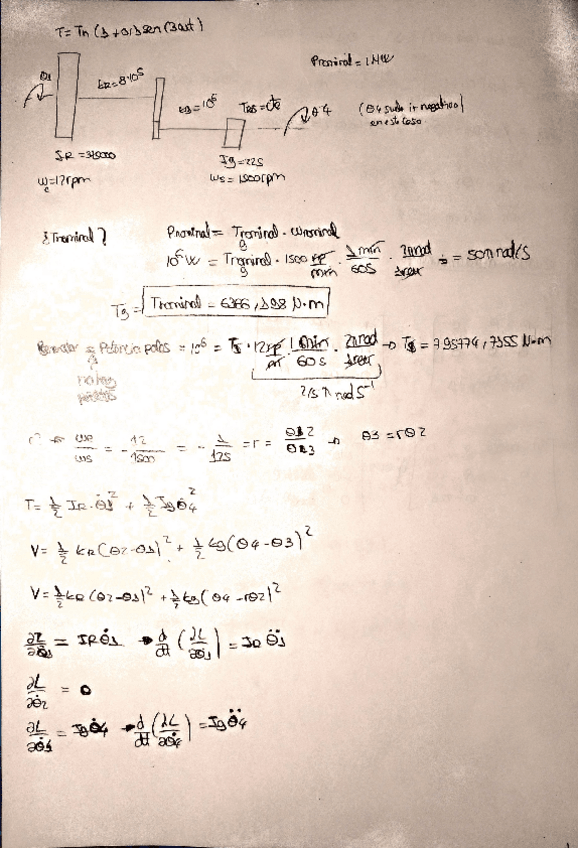 T = Tn (1 + 0,1 sen(3ωt))
Pnominal = 1 MW
θ1
kR = 8·10⁶
kg = 10⁶
θ4
(θ4 suele ir negativo)
en este caso
IR =
Ig = 225
ωe = 12 rpm
ωs = 1500 rpm
¿Tnominal?
Pnominal = Tgnominal · ωnominal
10⁶ W = Tgnominal · 1500 rev/min · 1 min/60 s · 2π rad/1 rev = 50π rad/s
Tg = Tnominal = 6366,198 N·m
Potencia palas = 10⁶ = · 12 · 1 min/60 s · 2π rad/1 rev → = 795774,7155 N·m
2/5 π rad s⁻¹
ωe/ωs = -12/1500 = -1/125 = r = → θ3 = rθ2
T = 1/2 IR · θ̇1² + 1/2 Ig θ̇4²
V = 1/2 kR (θ2 - θ1)² + 1/2 kg (θ4 - θ3)²
V = 1/2 kR (θ2 - θ1)² + 1/2 kg (θ4 - rθ2)²
∂L/∂θ̇1 = IR θ̇1 → d/dt (∂L/∂θ̇1) = IR θ̈1
∂L/∂θ̇2 = 0
∂L/∂θ̇4 = Ig θ̇4 → d/dt (∂L/∂θ̇4) = Ig θ̈4